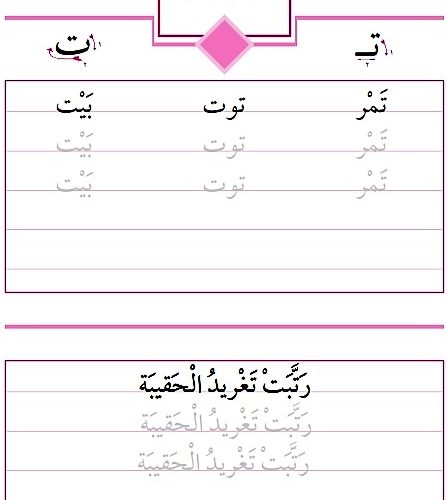 تـ ت
تَمْر توت بَيْت
تَمْر توت بَيْت
تَمْر توت بَيْت
رَتَّبَتْ تَغْريدُ الْحَقيبَة
رَتَّبَتْ تَغْريدُ الْحَقيبَة
رَتَّبَتْ تَغْريدُ الْحَقيبَة